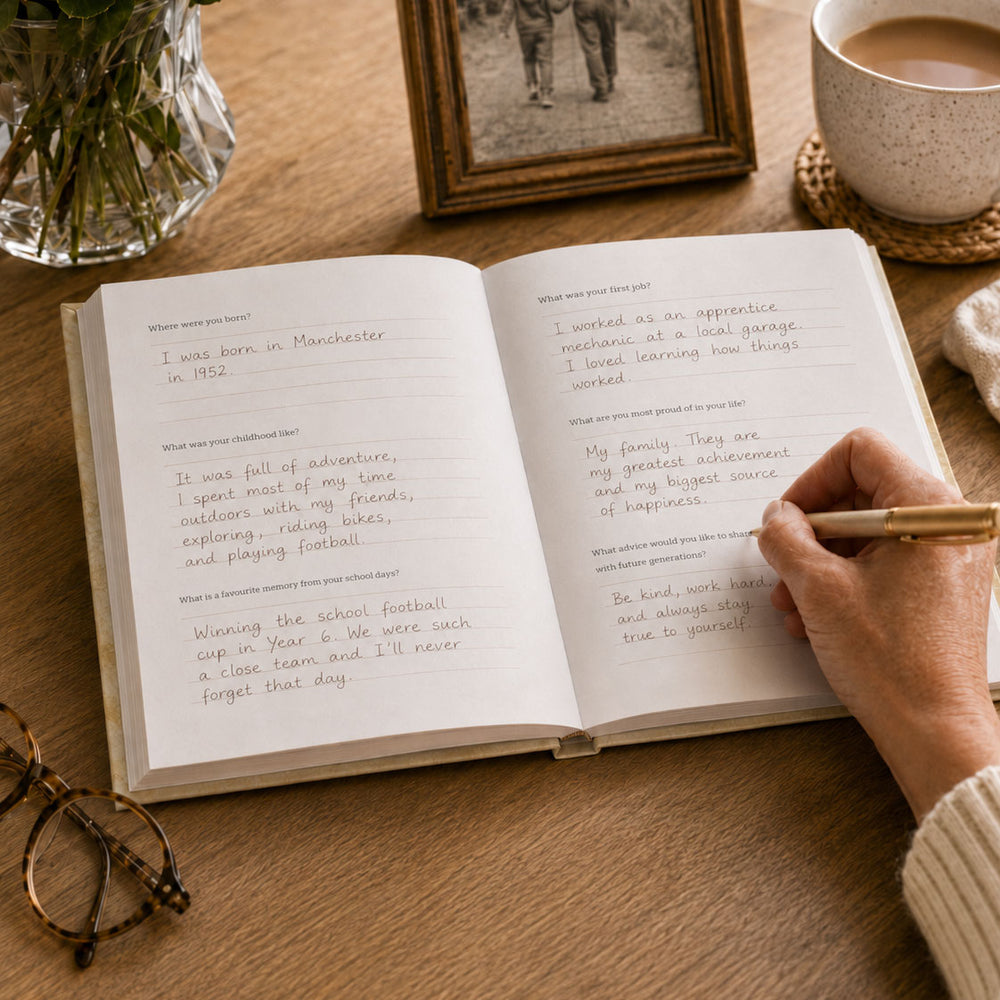 Where were you born?
I was born in Manchester
in 1952.
What was your childhood like?
It was full of adventure,
I spent most of my time
outdoors with my friends,
exploring, riding bikes,
and playing football.
What is a favourite memory from your school days?
Winning the school football
cup in Year 6. We were such
a close team and I'll never
forget that day.
What was your first job?
I worked as an apprentice
mechanic at a local garage.
I loved learning how things
worked.
What are you most proud of in your life?
My family. They are
my greatest achievement
and my biggest source
of happiness.
What advice would you like to share
with future generations?
Be kind, work hard,
and always stay
true to yourself.